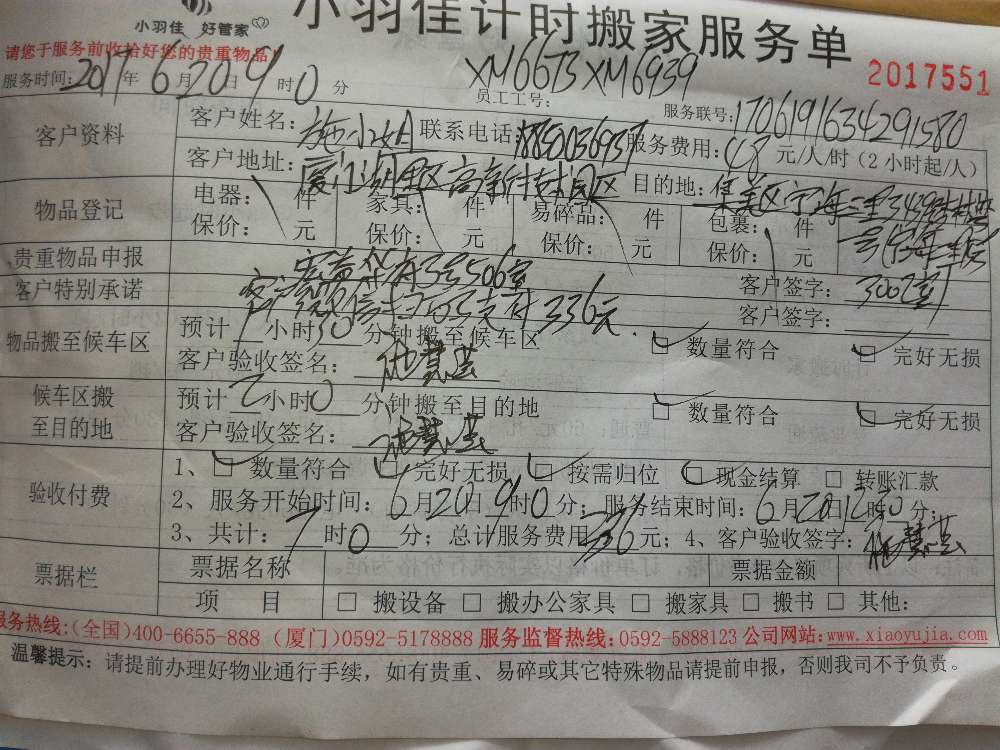 小羽佳 好管家
小羽佳计时搬家服务单
请您于服务前收拾好您的贵重物品!
2017551
服务时间: 2017年6月20日9时0分
员工工号: XM6673 XM6939
服务联号: 1706191634291580
客户资料
客户姓名: 施小姐 联系电话: 服务费用: 48元/人/时 (2小时起/人)
客户地址: 厦门湖里区高新技术园区 目的地: 集美区宁海三里
物品登记
电器: 件 家具: 件 易碎品: 件 包裹: 件
保价: 元 保价: 元 保价: 元 保价: 元
贵重物品申报 3号506室 客户签字: 3002室
客户特别承诺 支付336元. 客户签字:
物品搬至候车区
预计 小时 分钟搬至候车区
☐ 数量符合 ☐ 完好无损
客户验收签名: 施慧芸
候车区搬至目的地
预计2小时0分钟搬至目的地
☐ 数量符合 ☐ 完好无损
客户验收签名: 施慧芸
验收付费
1、☐ 数量符合 ☐ 完好无损 ☐ 按需归位 ☐ 现金结算 ☐ 转账汇款
2、服务开始时间: 6月20日9时0分; 服务结束时间: 6月20日12时30分;
3、共计: 7时0分; 总计服务费用336元; 4、客户验收签字: 施慧芸
票据栏
票据名称 票据金额
项 目 ☐ 搬设备 ☐ 搬办公家具 ☐ 搬家具 ☐ 搬书 ☐ 其他:
服务热线:(全国)400-6655-888 (厦门)0592-5178888 服务监督热线:0592-5888123 公司网站:www.xiaoyujia.com
温馨提示: 请提前办理好物业通行手续, 如有贵重、易碎或其它特殊物品请提前申报, 否则我司不予负责。